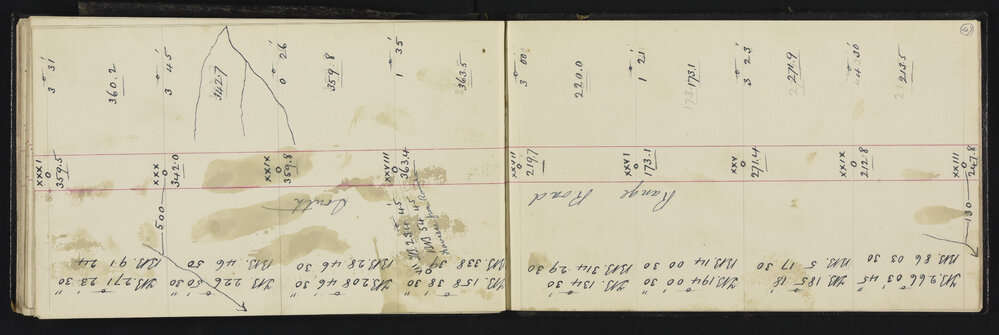 3° 31'
XXXI
359.5
F.B. 271° 23' 30"
B.B. 91 24
360.2
3° 45'
XXX
342.0
500
F.B. 226 50 30
B.B. 46 50
342.7
0° 26'
XXIX
359.8
F.B. 208° 46' 30"
B.B. 28 46 30
South
359.8
1° 35'
XXVIII
363.4
F.B. 158° 38' 30"
B.B. 338 39 30
234 45
BB 54 45
363.5
3° 00'
XXVII
219.7
F.B. 134° 30'
B.B. 314. 29. 30
220.0
Range Road
1° 21'
XXVI
173.1
F.B. 194° 00' 30"
B.B. 14 00 30
173.1
173
3° 23'
XXV
271.4
F.B. 185° 18'
B.B. 5 17 30
271.9
4° 30'
XXIX
212.8
F.B. 266° 03' 45"
B.B. 86 03 30
213.5
XXIII
247.8
130